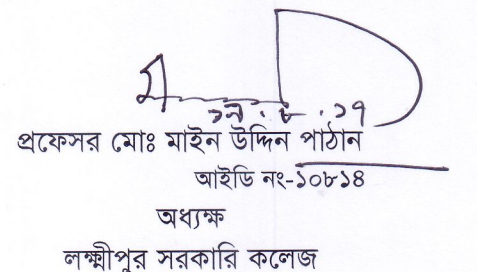 ১৯.৮.১৭
প্রফেসর মোঃ মাইন উদ্দিন পাঠান
আইডি নং-১০৮১৪
অধ্যক্ষ
লক্ষ্মীপুর সরকারি কলেজ